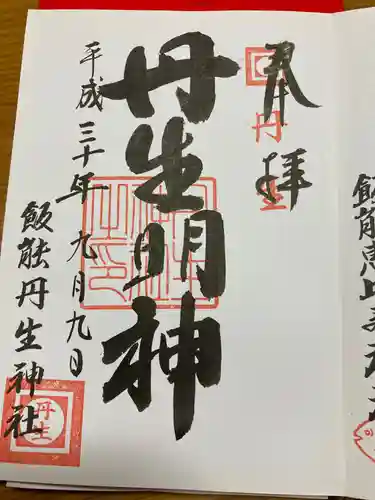 奉拝
丹生
丹生明神
平成三十年九月九日
飯能丹生神社
丹生
飯能恵比寿神社